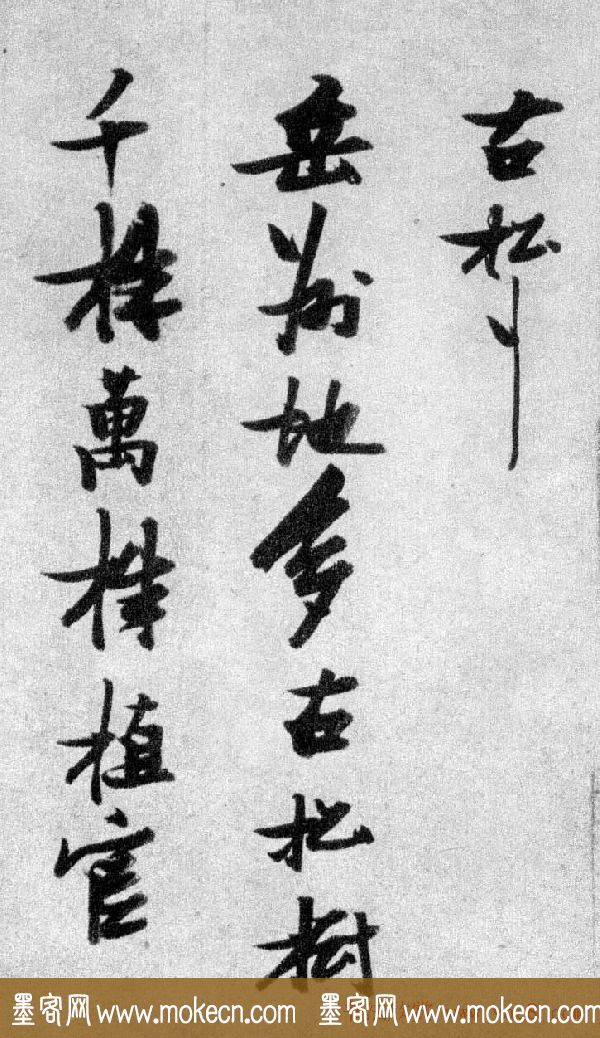 古松行
岳州地多古松樹
千株萬株植官
墨客网 www.mokecn.com 墨客网 www.mokecn.com